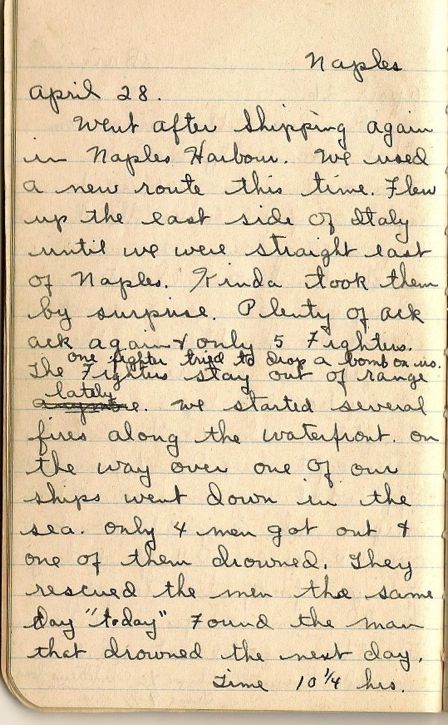 Naples
April 28.
Went after Shipping again
in Naples Harbour. We used
a new route this time. Flew
up the east side of Italy
until we were straight east
of Naples. Kinda took them
by surprise. Plenty of ack
ack again & only 5 Fighters.
one fighter tried to drop a bomb on us.
The Fighters stay out of range
lately
we started several
fires along the waterfront. on
the way over one of our
ships went down in the
sea. only 4 men got out &
one of them drowned. They
rescued the men the same
day "today" Found the man
that drowned the next day.
Time 10 1/4 hrs.